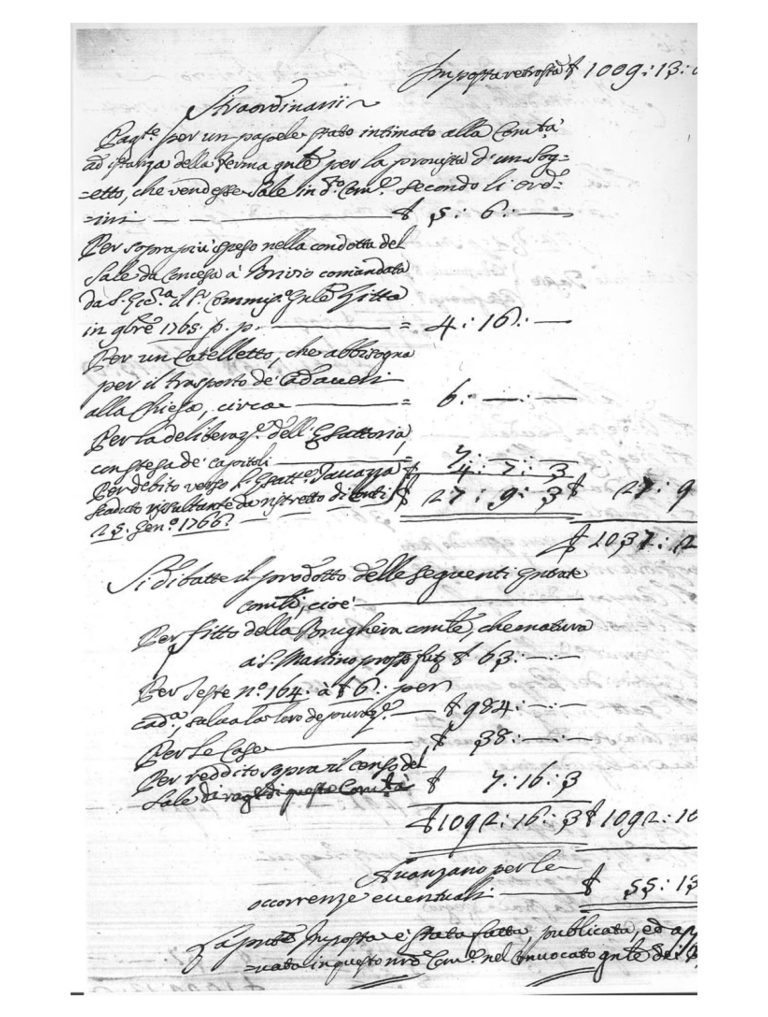 Imposta retrosta ₤ 1009: 13:
Straordinarii
Pag.te per un papele stato intimato alla Com.tà
ad istanza della ferma gnle per la provista d'un Sog=
=etto, che vendesse Sale in d.o Com.e secondo li ord=
=ini — — — ₤ 5: 6: —
Per sopra più speso nella condotta del
Sale da Concesa a Brivio comandata
da S. Ecc.za il S.r Commiss.o Gnle
in 9bre 1765. p. p. — = 4: 16: —
Per un Cateletto, che abbisogna
per il trasporto de' Cadaveri
alla Chiesa, circa — = 6: —: —
Per la deliberaz.e dell'Esattoria,
con stesa de' capitoli — = 7: —
Per debito verso l'Esatt.e
scaduto risultante da ristretto di conti 4: 7: 3
25. Gen.o 1766. — — — ₤ 27: 9: 3 ₤ 27: 9
₤ 1037: 2
Si dibatte il prodotto delle seguenti Entrate
com.li, cioè —
Per fitto della Brughera com.le, che matura
a S. Martino pross.o fut.o ₤ 63: —: —
Per teste n.o 164. a ₤ 6: per
cad.a, salva la loro depuraz.e — ₤ 984: —: —
Per le Case — ₤ 38: —: —
Per reddito sopra il censo del
Sale di rag.e di questa Com.tà ₤ 7: 16: 3
₤ 1092: 16: 3 ₤ 1092: 16
Avanzano per le
occorrenze eventuali ₤ 55: 13
La pnte Imposta è stata fatta, publicata, ed ap
=vata in questo nro Com.e nel Convocato gnle de'